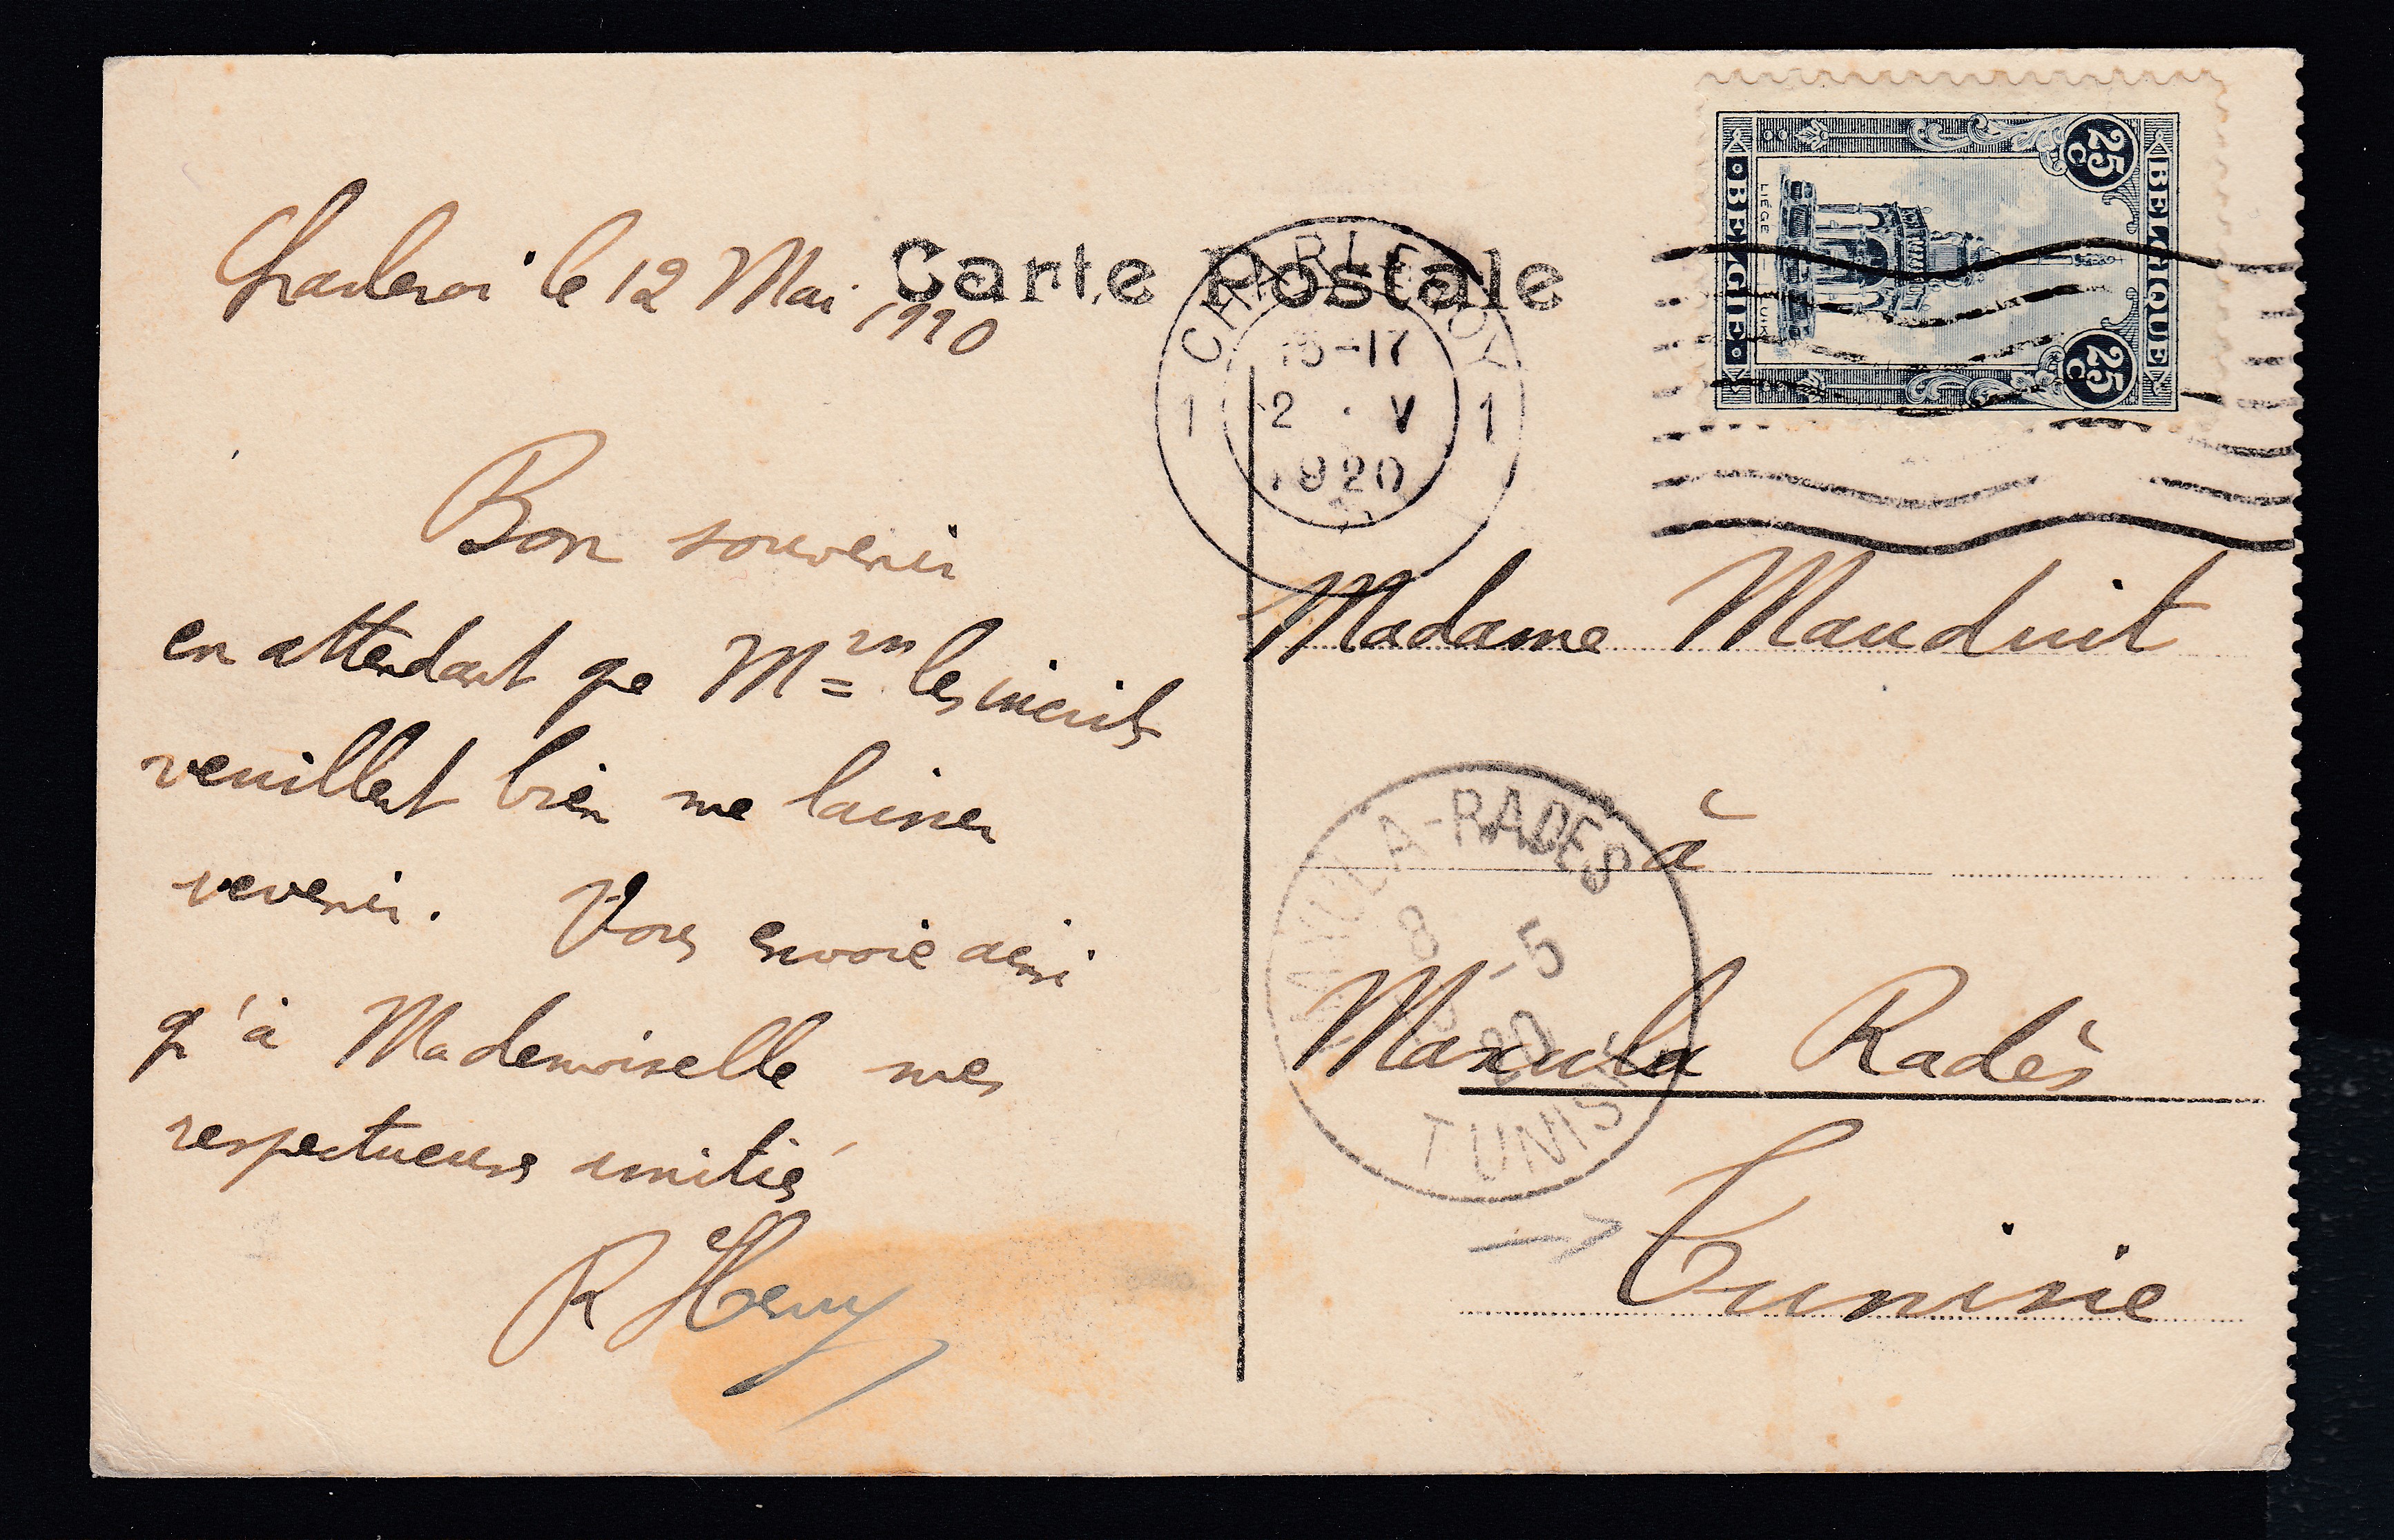 Carte Postale
Charleroi le 12 Mai 1920
Bon souvenir
en attendant que M les
veuillent bien me laisser
revenir. Vous envoie ainsi
qu'à Mademoiselle mes
respectueuse amitié
R Henry
CHARLEROY
1 15-17 1
12 . V
1920
BELGIQUE
25 C 25 C
LIÉGE - LUIK
BELGIË
Madame Mauduit
à
Maxula Radès
Tunisie
MAXULA-RADES
8 -5
20
TUNISIE